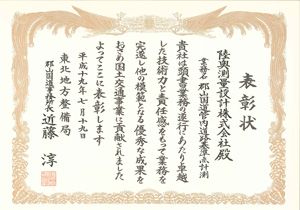 表彰状
陸奥測量設計株式会社殿
業務名 郡山国道管内道路基準点計測
貴社は頭書業務の遂行にあたり卓越
した技術力と責任感をもって業務を
完遂し他の模範となる優秀な成果を
おさめ国土交通事業に貢献されました
よってここに表彰します
平成十九年七月十九日
東北地方整備局
郡山国道事務所長 近藤淳